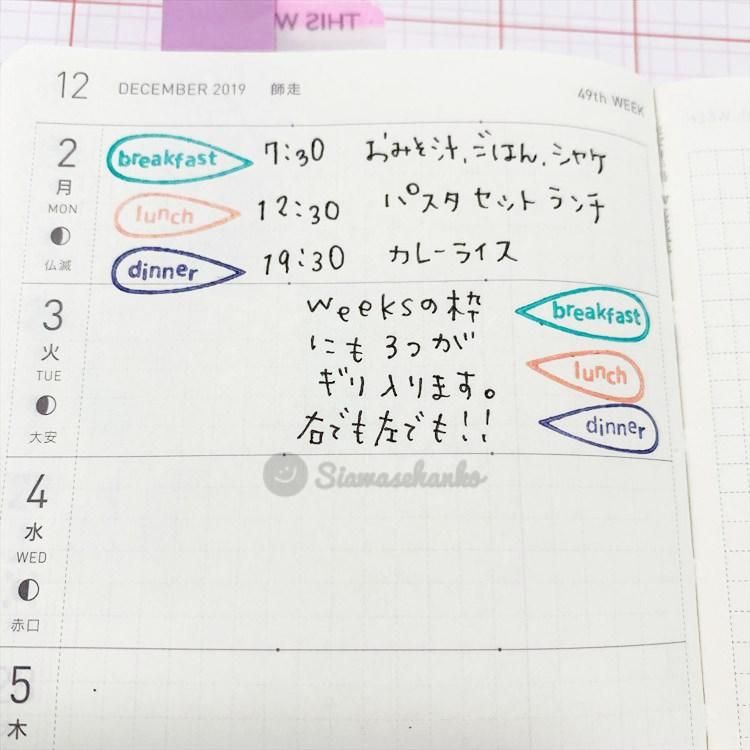 THIS W
12 DECEMBER 2019 師走 49th WEEK
2
月
MON
仏滅
breakfast 7:30 おみそ汁、ごはん、シャケ
lunch 12:30 パスタセットランチ
dinner 19:30 カレーライス
3
火
TUE
大安
weeksの枠
にも3つが
ギリ入ります。
右でも左でも!!
breakfast
lunch
dinner
Siawasehanko
4
水
WED
赤口
5
木